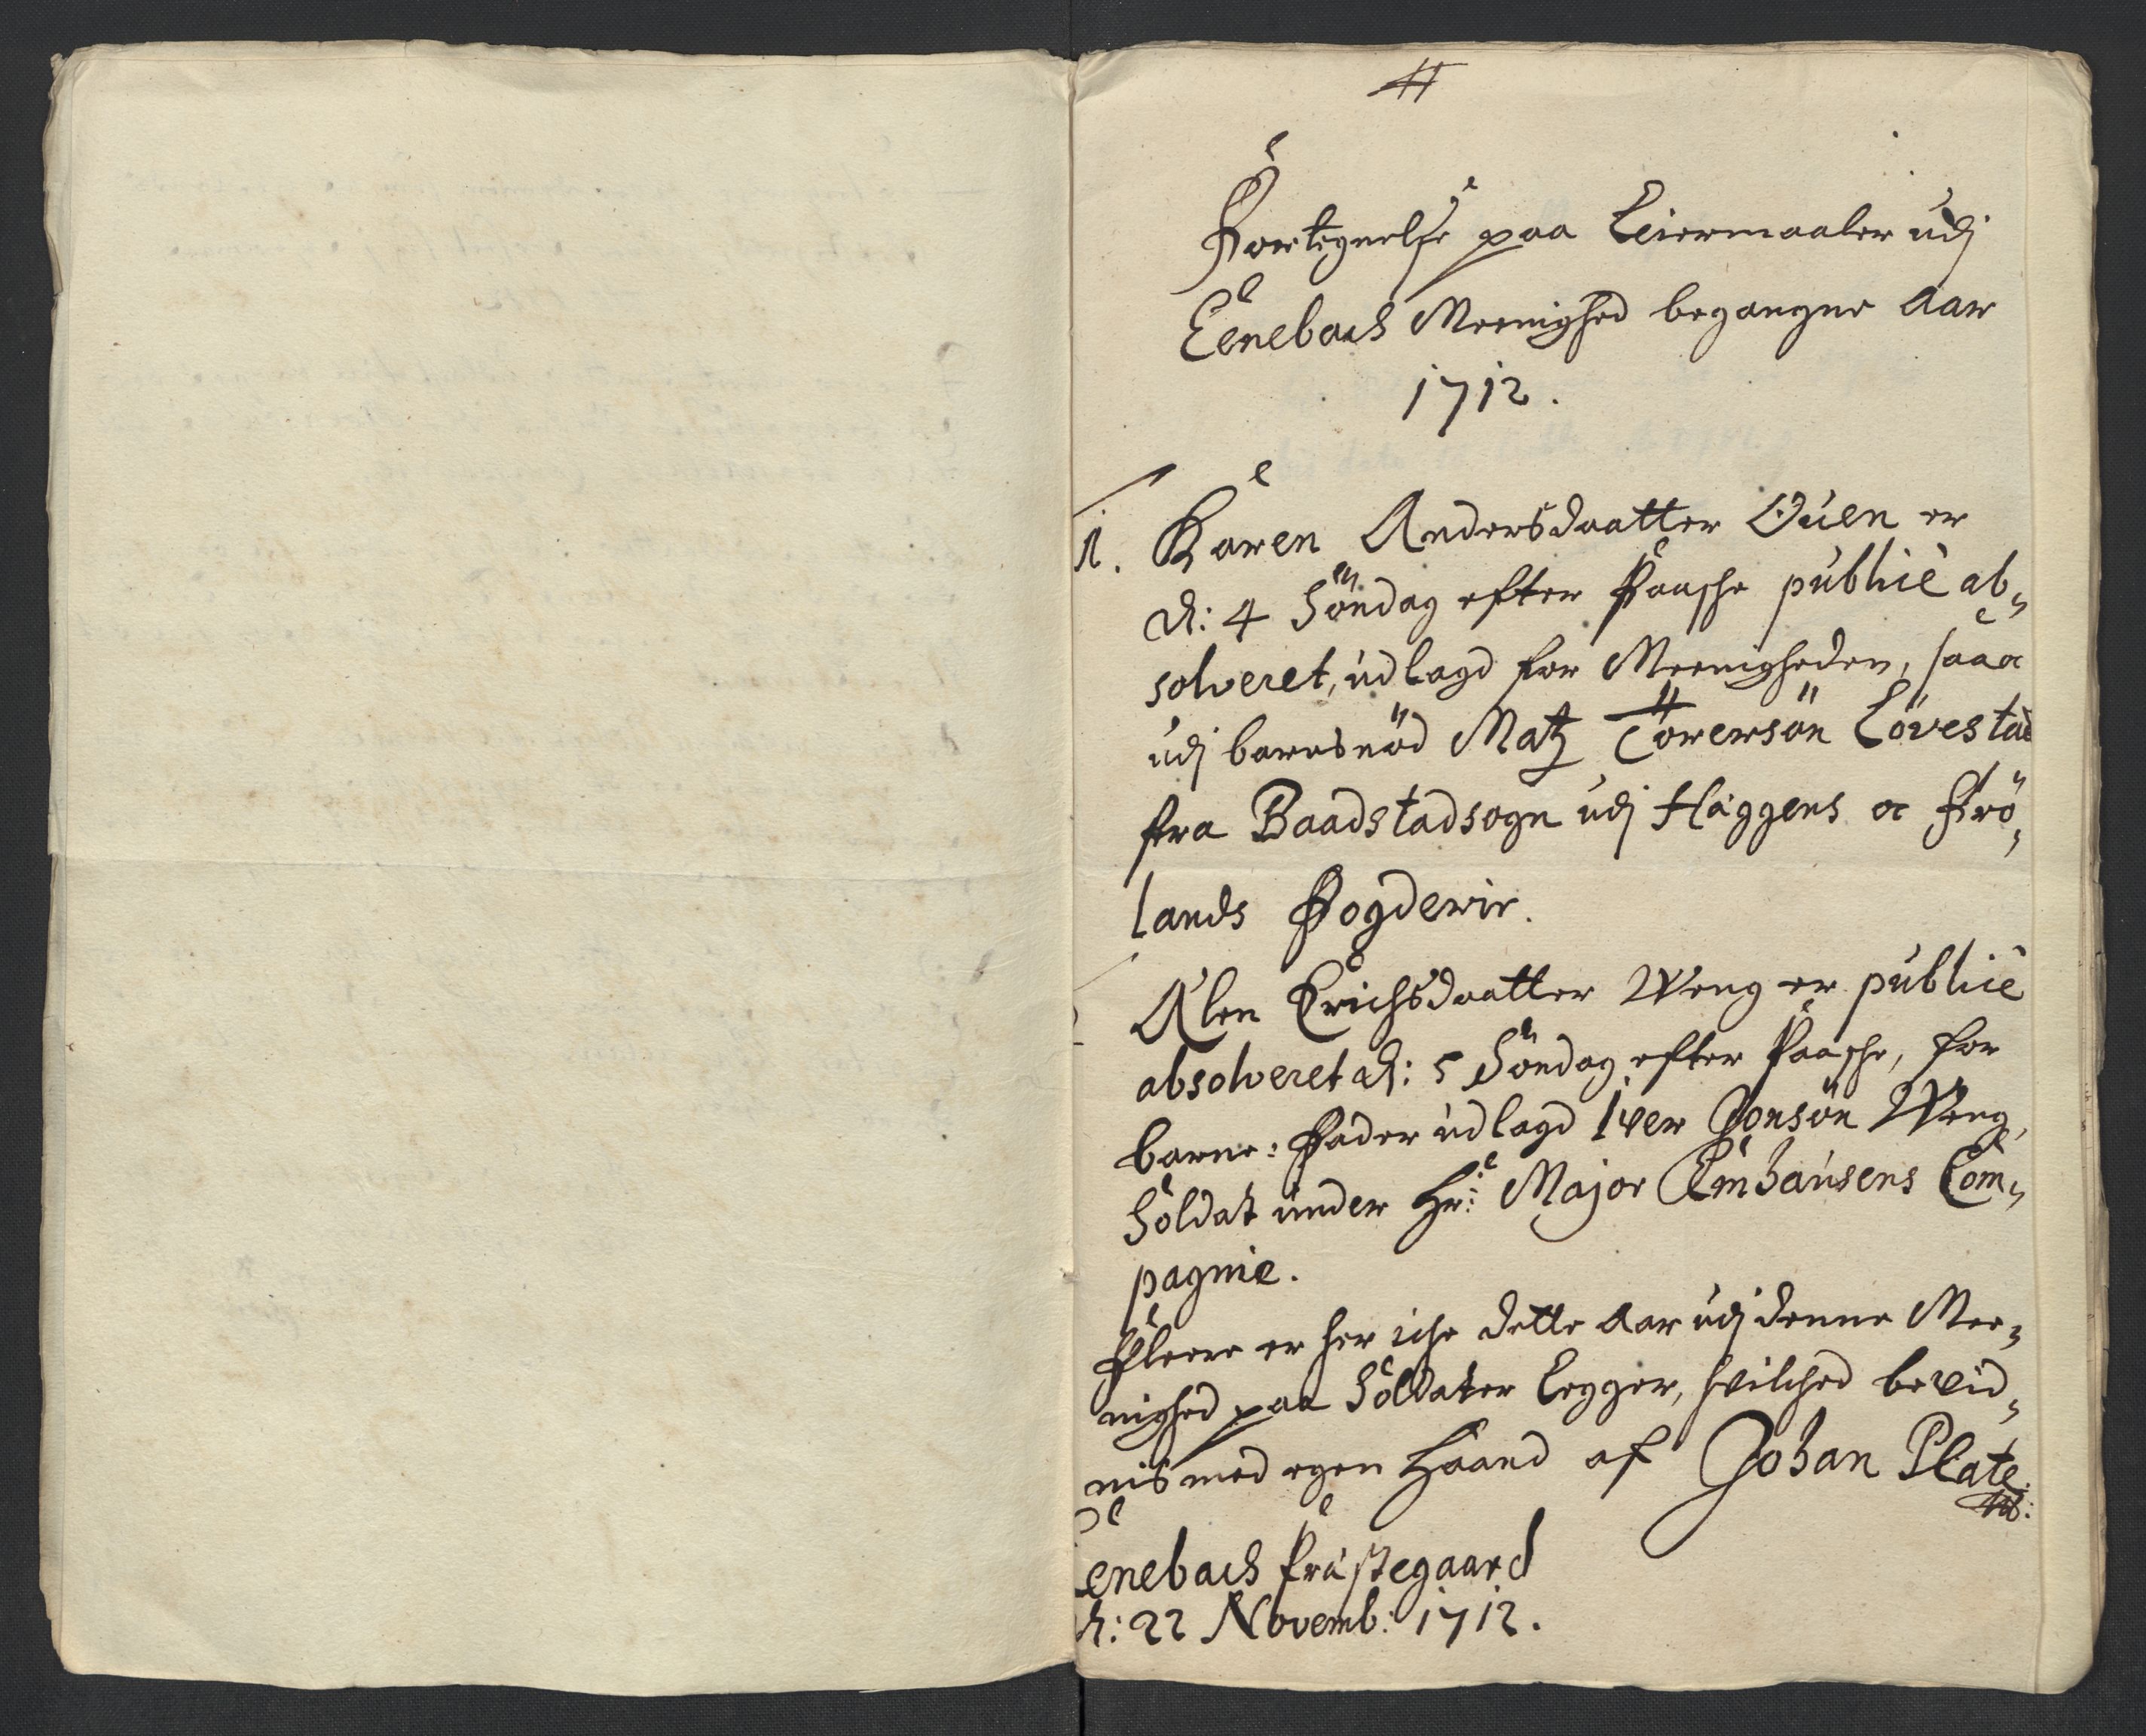 Fortegnelse paa Leiermaaler udj
Eenebach Meenighed begangne Aar
1712.
1. Karen Andersdaatter Ouen er
d: 4 Söndag efter Paasche publicè ab,
solveret, udlagd for Meenigheden, saa oc
udj barnsnöd Matz Törersön Lövestad
fra Baadstadsogn udj Häggens oc Frö,
lands Fogderie.
Alen Erichsdaatter Weng er publicè
absolveret d: 5 Söndag efter Paasche, for
barne: Fader udlagd Iver Jonsön Weng,
Soldat under Hr: Major Emhausens Com,
pagnie.
Fleere er her iche dette Aar udj denne Mee,
nighed paa Soldater Legger, hvilched bevid,
nis med egen Haand af Johan Plate
Eenebach Præstegaard
d: 22 Novemb: 1712.